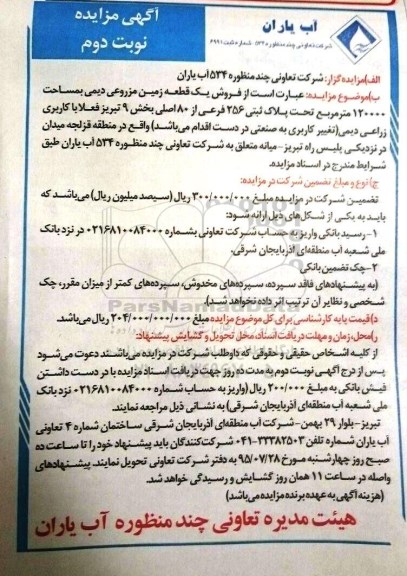 آگهی مزایده
نوبت دوم
آب یاران
شرکت تعاونی چند منظوره ۵۳۴ شماره ثبت ۶۹۹۱
الف)مزایده‌گزار: شرکت تعاونی چند منظوره ۵۳۴ آب یاران
ب)موضوع مزایده: عبارت است از فروش یک قطعه زمین مزروعی دیمی بمساحت
۱۲۰۰۰۰ مترمربع تحت پلاک ثبتی ۲۵۶ فرعی از ۸۰ اصلی بخش ۹ تبریز فعلا با کاربری
زراعی دیمی(تغییر کاربری به صنعتی در دست اقدام می‌باشد) واقع در منطقه قزلجه میدان
در نزدیکی پلیس راه تبریز - میانه متعلق به شرکت تعاونی چند منظوره ۵۳۴ آب یاران طبق
شرایط مندرج در اسناد مزایده.
ج)نوع و مبلغ تضمین شرکت در مزایده:
تضمین شرکت در مزایده مبلغ ۳۰۰/۰۰۰/۰۰۰ ریال (سیصد میلیون ریال) می‌باشد که
باید به یکی از شکل‌های ذیل ارائه شود:
۱- رسید بانکی واریز به حساب شرکت تعاونی بشماره ۰۲۱۶۸۱۰۰۸۴۰۰۰ نزد بانک
ملی شعبه آب منطقه‌ای آذربایجان شرقی.
۲-چک تضمین بانکی
(به پیشنهادهای فاقد سپرده، سپرده‌های مخدوش، سپرده‌های کمتر از میزان مقرر، چک
شخصی و نظایر آن ترتیب اثر داده نخواهد شد.)
د)قیمت پایه کارشناسی برای کل موضوع مزایده مبلغ ۲۰۴/۰۰۰/۰۰۰/۰۰۰ ریال می‌باشد.
ر)محل، زمان و مهلت دریافت اسناد، محل تحویل و گشایش پیشنهاد:
از کلیه اشخاص حقیقی و حقوقی که داوطلب شرکت در مزایده می‌باشند دعوت می‌شود
پس از درج آگهی نوبت دوم به مدت ده روز جهت دریافت اسناد مزایده با در دست داشتن
فیش بانکی به مبلغ ۲۰۰/۰۰۰ ریال (واریز به حساب شماره ۰۲۱۶۸۱۰۰۸۴۰۰۰ نزد بانک
ملی شعبه آب منطقه‌ای آذربایجان شرقی) به نشانی ذیل مراجعه نمایند.
تبریز - بلوار ۲۹ بهمن - شرکت آب منطقه‌ای آذربایجان شرقی ساختمان شماره ۴ تعاونی
آب یاران شماره تلفن ۳۳۳۸۲۵۰۳-۰۴۱ شرکت‌کنندگان باید پیشنهاد خود را تا ساعت ده
صبح روز چهارشنبه مورخ ۹۵/۰۷/۲۸ به دفتر شرکت تعاونی تحویل نمایند. پیشنهادهای
واصله در ساعت ۱۱ همان روز گشایش و رسیدگی خواهد شد.
(هزینه آگهی به عهده برنده مزایده می‌باشد)
هیئت مدیره تعاونی چند منظوره آب یاران
ParsNamadData